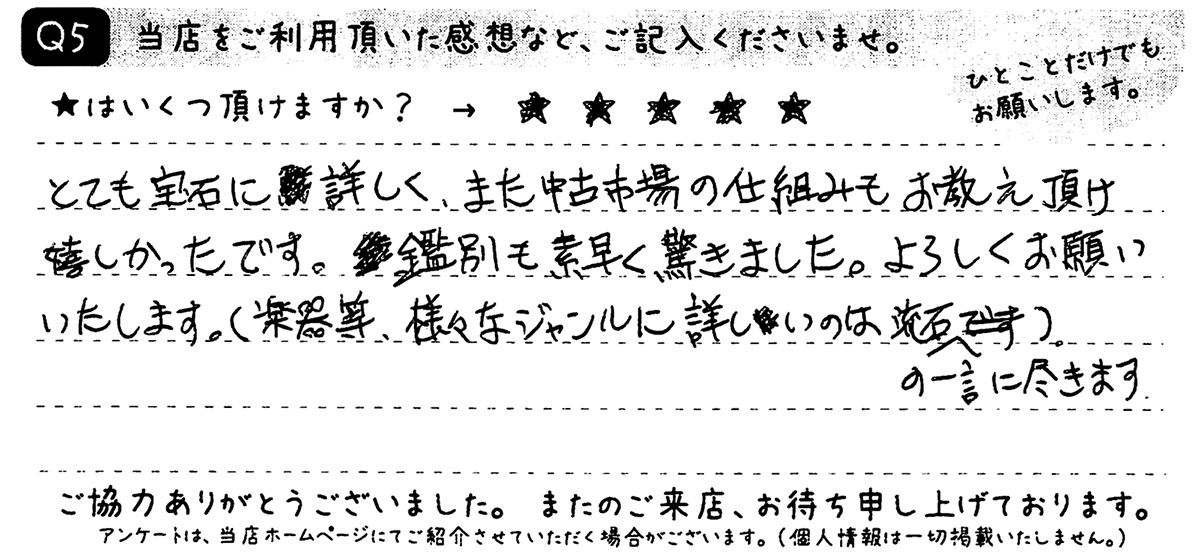 Q5 当店をご利用頂いた感想など、ご記入くださいませ。
ひとことだけでも
お願いします。
★はいくつ頂けますか？ → ★ ★ ★ ★ ★
とても宝石に詳しく、また中古市場の仕組みもお教え頂け
嬉しかったです。鑑別も素早く驚きました。よろしくお願い
いたします。(楽器等、様々なジャンルに詳しいのは流石です)。
の一言に尽きます
ご協力ありがとうございました。 またのご来店、お待ち申し上げております。
アンケートは、当店ホームページにてご紹介させていただく場合がございます。(個人情報は一切掲載いたしません。)